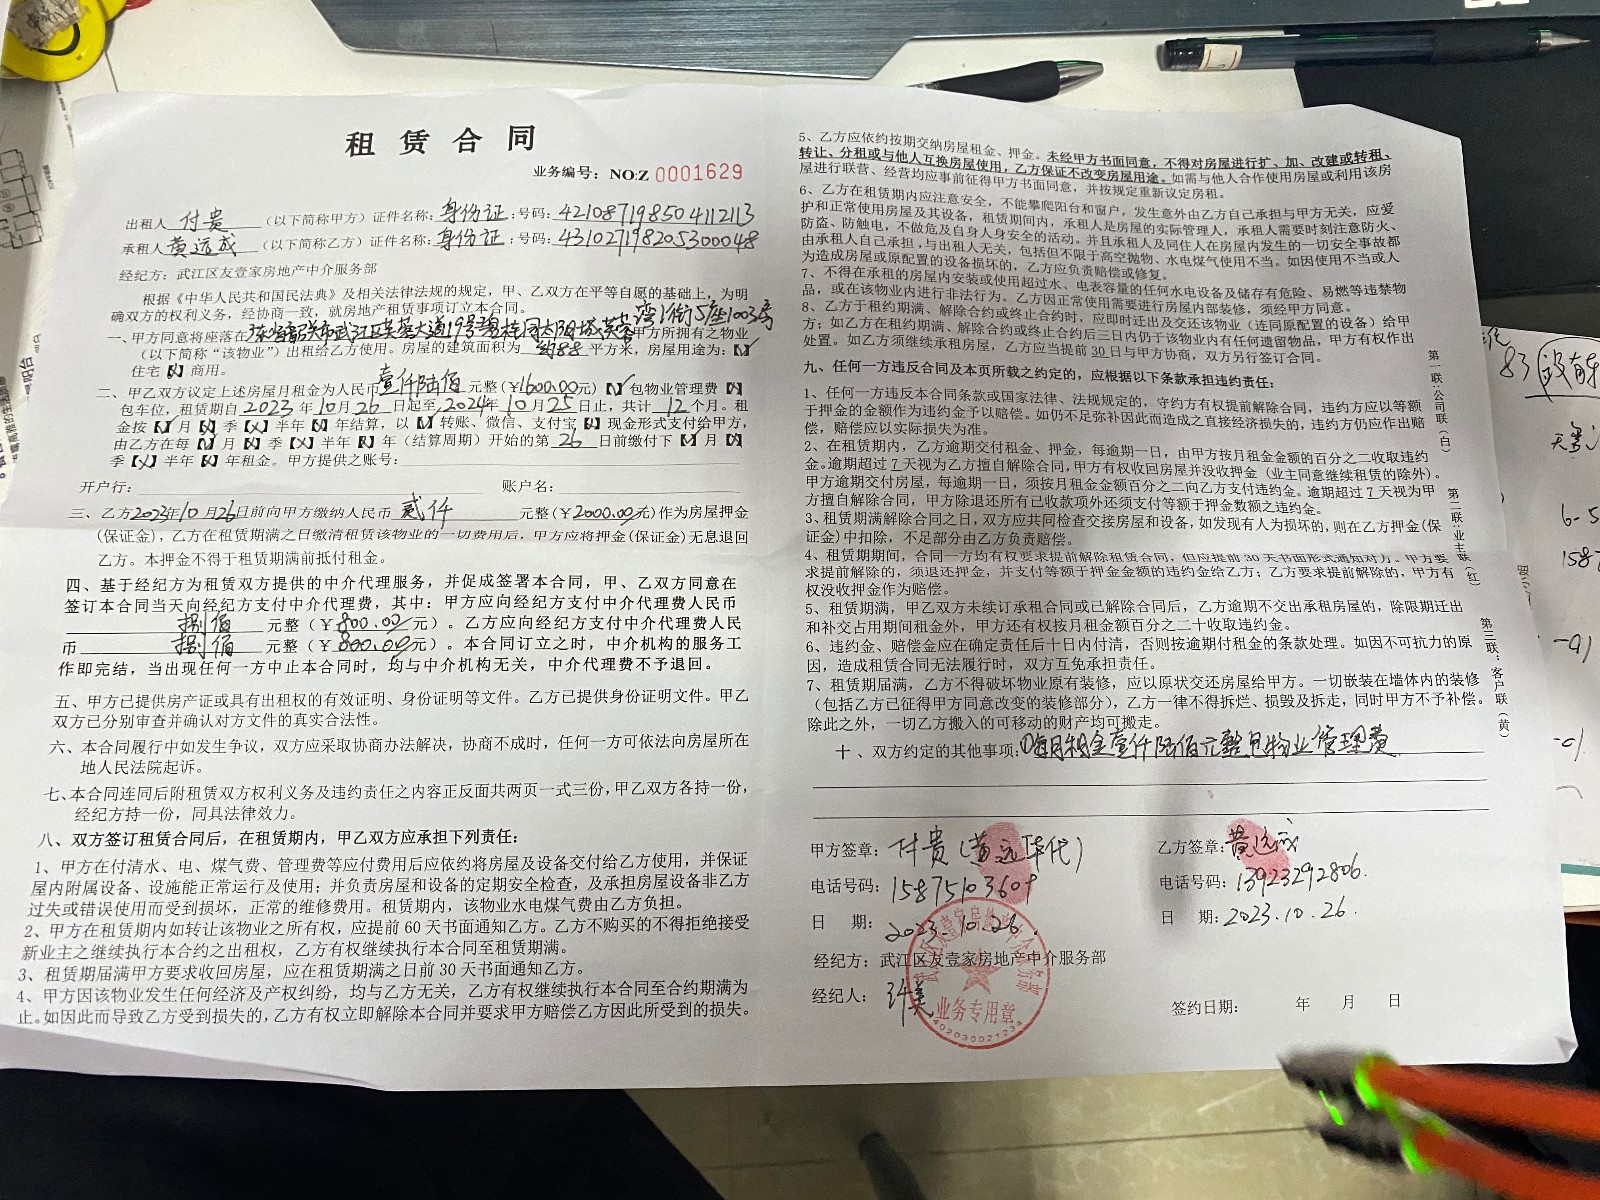 租赁合同
业务编号：NO:Z 0001629
出租人 付贵 （以下简称甲方）证件名称：身份证；号码：421087198504112113
承租人 黄远成 （以下简称乙方）证件名称：身份证；号码：431027198205300048
经纪方：武江区友壹家房地产中介服务部
根据《中华人民共和国民法典》及相关法律法规的规定，甲、乙双方在平等自愿的基础上，为明
确双方的权利义务，经协商一致，就房地产租赁事项订立本合同。
一、甲方同意将座落在 19号碧桂园太阳城芙蓉湾1街5座1003房 甲方所拥有之物业
（以下简称“该物业”）出租给乙方使用。房屋的建筑面积为 约88 平方米，房屋用途为：【✓】
住宅【】商用。
二、甲乙双方议定上述房屋月租金为人民币 壹仟陆佰 元整（￥1600.00元）【✓】包物业管理费【】
包车位，租赁期自 2023 年 10 月 26 日起至 2024年 10 月 25 日止，共计 12 个月。租
金按【✓】月【】季【】半年【】年结算，以【】转账、微信、支付宝【】现金形式支付给甲方，
由乙方在每【】月【】季【】半年【】年（结算周期）开始的第 26 日前缴付下【】月【】
季【】半年【】年租金。甲方提供之账号：
开户行： 账户名：
三、乙方2023年10月26日前向甲方缴纳人民币 贰仟 元整（￥2000.00元）作为房屋押金
（保证金），乙方在租赁期满之日缴清租赁该物业的一切费用后，甲方应将押金（保证金）无息退回
乙方。本押金不得于租赁期满前抵付租金。
四、基于经纪方为租赁双方提供的中介代理服务，并促成签署本合同，甲、乙双方同意在
签订本合同当天向经纪方支付中介代理费，其中：甲方应向经纪方支付中介代理费人民币
捌佰 元整（￥800.00元）。乙方应向经纪方支付中介代理费人民
币 捌佰 元整（￥800.00元）。本合同订立之时，中介机构的服务工
作即完结，当出现任何一方中止本合同时，均与中介机构无关，中介代理费不予退回。
五、甲方已提供房产证或具有出租权的有效证明、身份证明等文件。乙方已提供身份证明文件。甲乙
双方已分别审查并确认对方文件的真实合法性。
六、本合同履行中如发生争议，双方应采取协商办法解决，协商不成时，任何一方可依法向房屋所在
地人民法院起诉。
七、本合同连同后附租赁双方权利义务及违约责任之内容正反面共两页一式三份，甲乙双方各持一份，
经纪方持一份，同具法律效力。
八、双方签订租赁合同后，在租赁期内，甲乙双方应承担下列责任：
1、甲方在付清水、电、煤气费、管理费等应付费用后应依约将房屋及设备交付给乙方使用，并保证
屋内附属设备、设施能正常运行及使用；并负责房屋和设备的定期安全检查，及承担房屋设备非乙方
过失或错误使用而受到损坏，正常的维修费用。租赁期内，该物业水电煤气费由乙方负担。
2、甲方在租赁期内如转让该物业之所有权，应提前60天书面通知乙方。乙方不购买的不得拒绝接受
新业主之继续执行本合约之出租权，乙方有权继续执行本合同至租赁期满。
3、租赁期届满甲方要求收回房屋，应在租赁期满之日前30天书面通知乙方。
4、甲方因该物业发生任何经济及产权纠纷，均与乙方无关，乙方有权继续执行本合同至合约期满为
止。如因此而导致乙方受到损失的，乙方有权立即解除本合同并要求甲方赔偿乙方因此所受到的损失。
5、乙方应依约按期交纳房屋租金、押金。未经甲方书面同意，不得对房屋进行扩、加、改建或转租、
转让、分租或与他人互换房屋使用，乙方保证不改变房屋用途。如需与他人合作使用房屋或利用该房
屋进行联营、经营均应事前征得甲方书面同意，并按规定重新议定房租。
6、乙方在租赁期内应注意安全，不能攀爬阳台和窗户，发生意外由乙方自己承担与甲方无关，应爱
护和正常使用房屋及其设备，租赁期间内，承租人是房屋的实际管理人，承租人需要时刻注意防火、
防盗、防触电，不做危及自身人身安全的活动。并且承租人及同住人在房屋内发生的一切安全事故都
由承租人自己承担，与出租人无关，包括但不限于高空抛物、水电煤气使用不当。如因使用不当或人
为造成房屋或原配置的设备损坏的，乙方应负责赔偿或修复。
7、不得在承租的房屋内安装或使用超过水、电表容量的任何水电设备及储存有危险、易燃等违禁物
品，或在该物业内进行非法行为。乙方因正常使用需要进行房屋内部装修，须经甲方同意。
8、乙方于租约期满、解除合约或终止合约时，应即时迁出及交还该物业（连同原配置的设备）给甲
方；如乙方在租约期满、解除合约或终止合约后三日内仍于该物业内有任何遗留物品，甲方有权作出
处置。如乙方须继续承租房屋，乙方应当提前30日与甲方协商，双方另行签订合同。
九、任何一方违反合同及本页所载之约定的，应根据以下条款承担违约责任：
1、任何一方违反本合同条款或国家法律、法规规定的，守约方有权提前解除合同，违约方应以等额
于押金的金额作为违约金予以赔偿。如仍不足弥补因此而造成之直接经济损失的，违约方仍应作出赔
偿，赔偿应以实际损失为准。
2、在租赁期内，乙方逾期交付租金、押金，每逾期一日，由甲方按月租金金额的百分之二收取违约
金。逾期超过7天视为乙方擅自解除合同，甲方有权收回房屋并没收押金（业主同意继续租赁的除外）。
甲方逾期交付房屋，每逾期一日，须按月租金金额百分之二向乙方支付违约金。逾期超过7天视为甲
方擅自解除合同，甲方除退还所有已收款项外还须支付等额于押金数额之违约金。
3、租赁期满解除合同之日，双方应共同检查交接房屋和设备，如发现有人为损坏的，则在乙方押金（保
证金）中扣除，不足部分由乙方负责赔偿。
4、租赁期期间，合同一方均有权要求提前解除租赁合同，但应提前30天书面形式通知对方。甲方要
求提前解除的，须退还押金，并支付等额于押金金额的违约金给乙方；乙方要求提前解除的，甲方有
权没收押金作为赔偿。
5、租赁期满，甲乙双方未续订承租合同或已解除合同后，乙方逾期不交出承租房屋的，除限期迁出
和补交占用期间租金外，甲方还有权按月租金额百分之二十收取违约金。
6、违约金、赔偿金应在确定责任后十日内付清，否则按逾期付租金的条款处理。如因不可抗力的原
因，造成租赁合同无法履行时，双方互免承担责任。
7、租赁期届满，乙方不得破坏物业原有装修，应以原状交还房屋给甲方。一切嵌装在墙体内的装修
（包括乙方已征得甲方同意改变的装修部分），乙方一律不得拆烂、损毁及拆走，同时甲方不予补偿。
除此之外，一切乙方搬入的可移动的财产均可搬走。
十、双方约定的其他事项：①每月租金壹仟陆佰元整包物业管理费
甲方签章：付贵（黄远华代）
电话号码：15875103609
日 期：2023.10.26.
经纪方：武江区友壹家房地产中介服务部
经纪人：
业务专用章
乙方签章：黄远成
电话号码：13923292806.
日 期：2023.10.26.
签约日期： 年 月 日
第一联：公司联（白）
第二联：业主联（红）
第三联：客户联（黄）